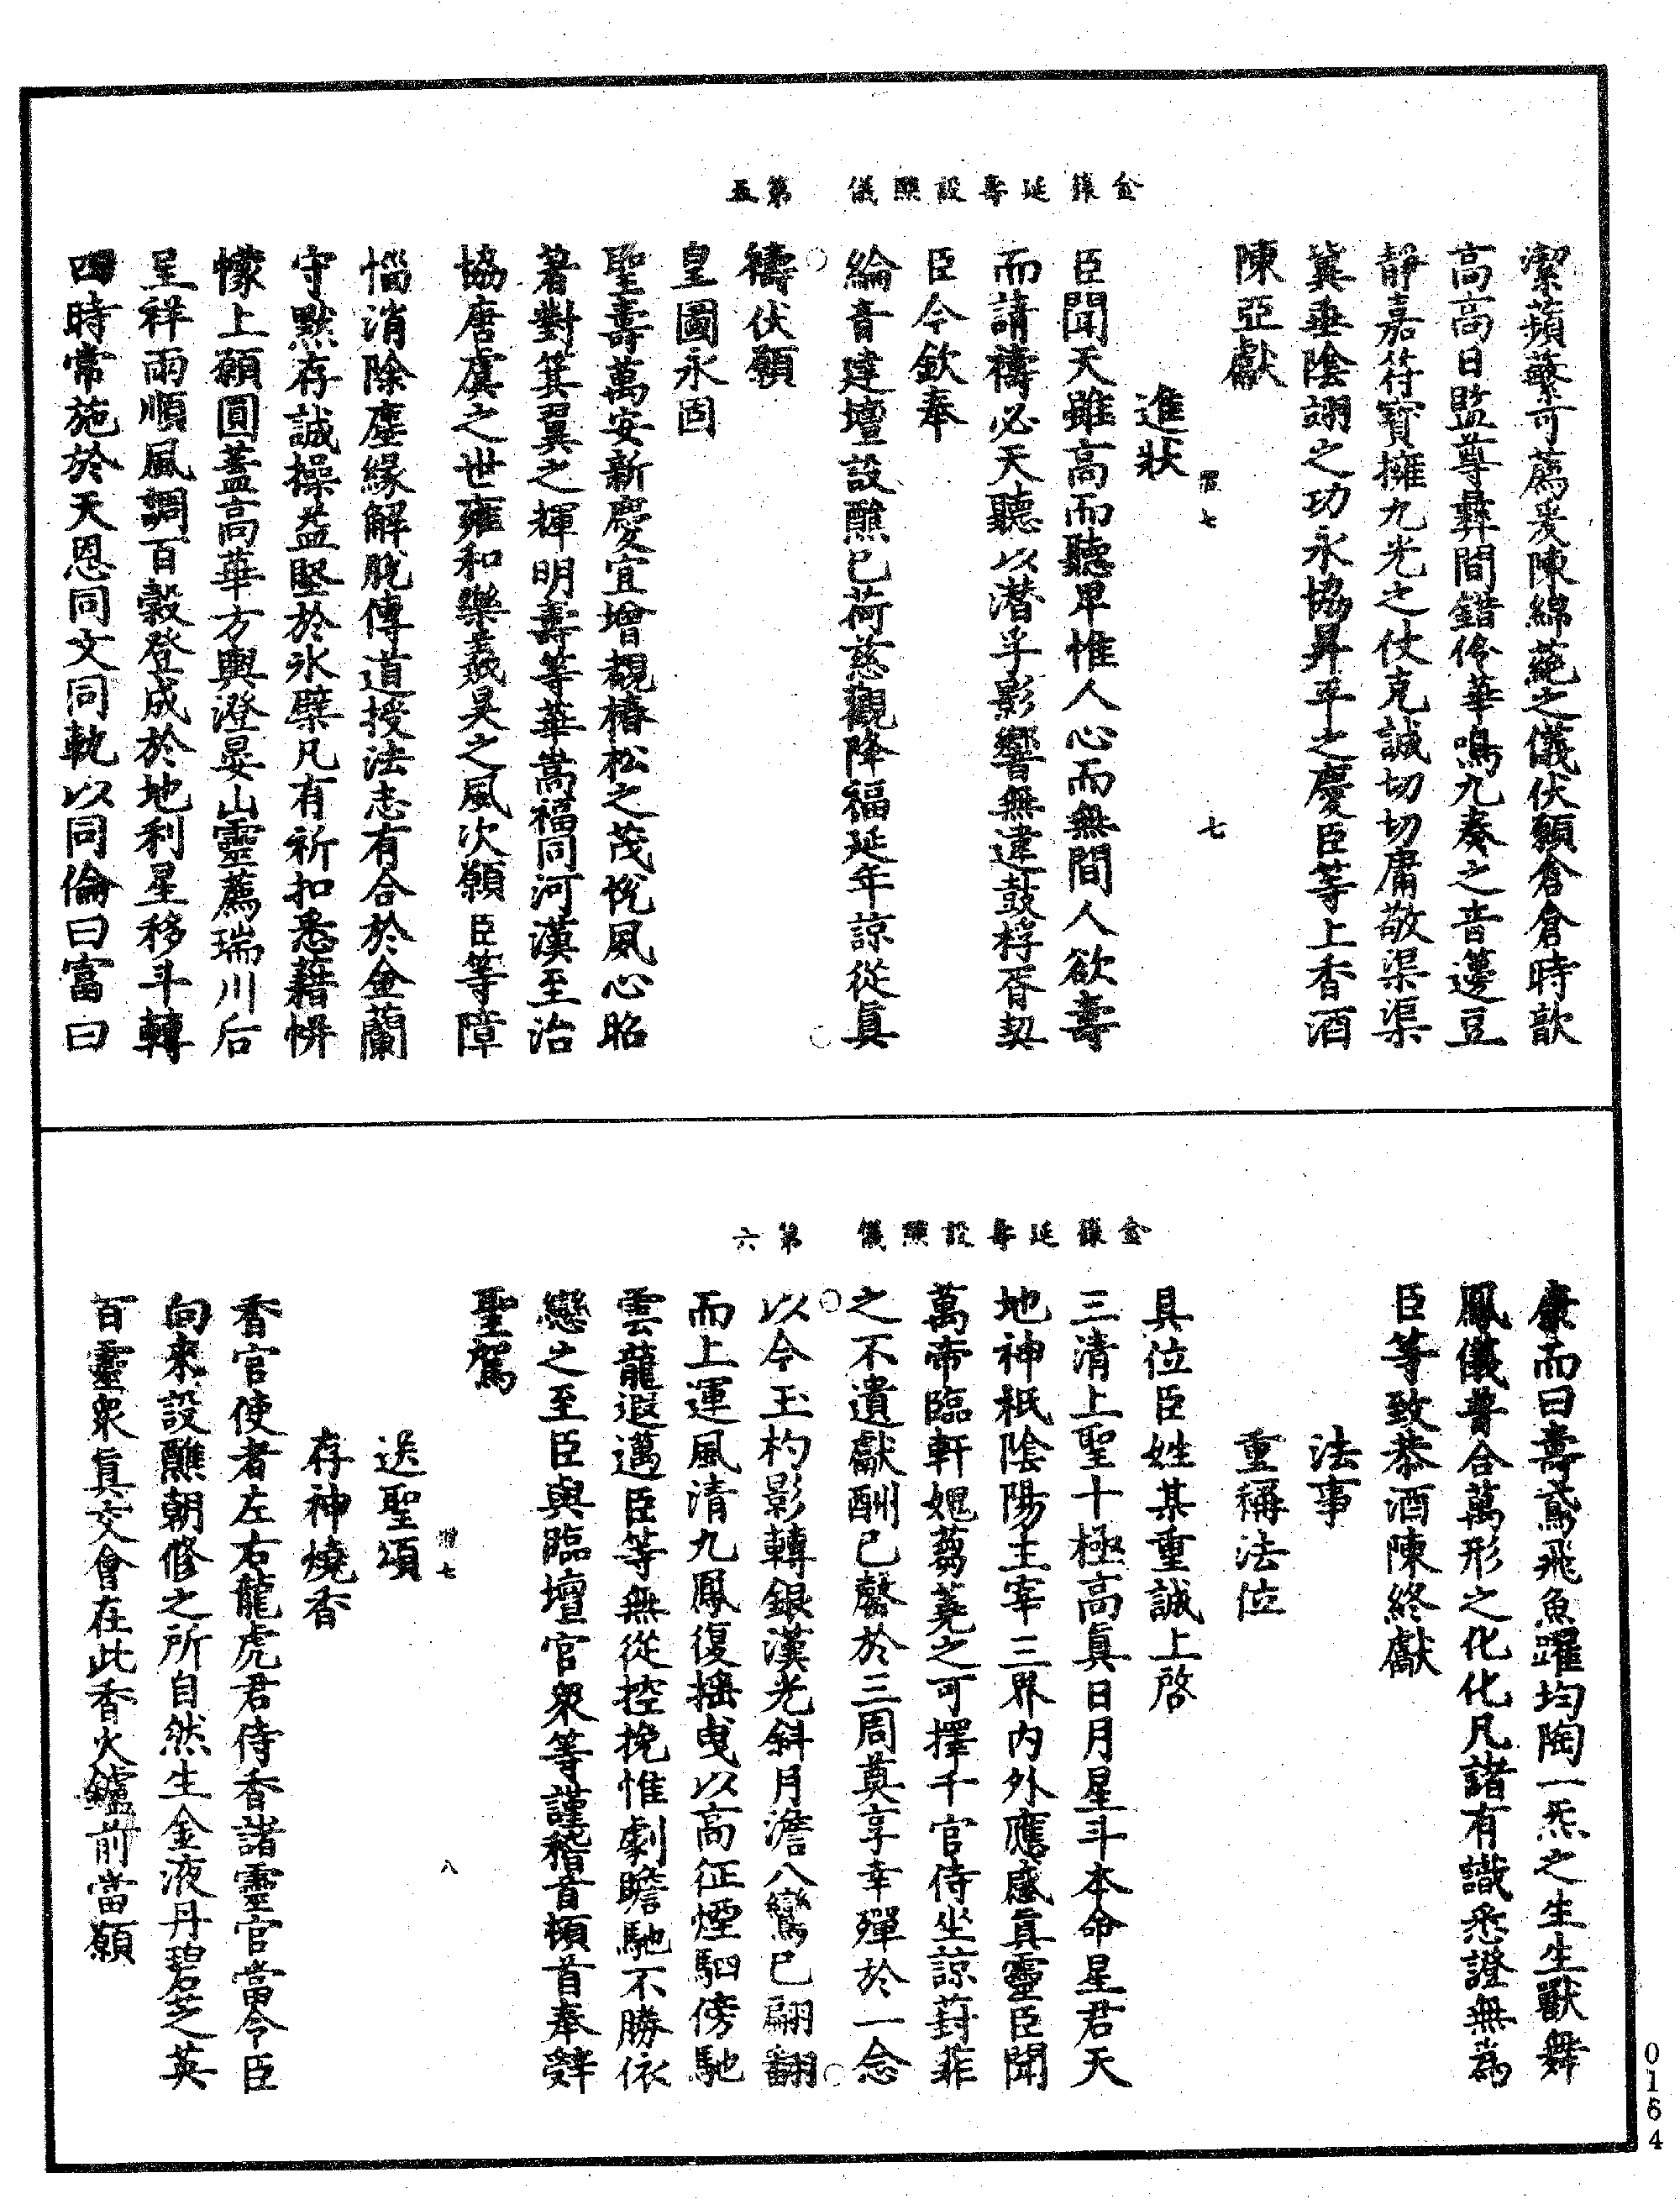 金籙延壽設醮儀　第五
潔蘋蘩可薦爰陳綿蕝之儀伏願倉倉時歆
高高日監尊彝間錯伶華鳴九奏之音籩豆
靜嘉符寶擁九光之仗克誠切切庸敬渠渠
冀垂陰翊之功永協昇平之慶臣等上香酒
陳亞獻
七
七
進狀
臣聞天雖高而聽卑惟人心而無間人欲壽
而請禱必天聽以潛孚影響無違鼓桴胥契
臣今欽奉
綸音建壇設醮已荷慈觀降福延年諒從真
禱伏願
皇圖永固
聖壽萬安新慶宜增覩椿松之茂恱夙心昭
著對箕翼之輝明壽等華嵩福同河漢至治
協唐虞之世雍和樂羲昊之風次願臣等障
惱消除塵緣解脫傳道授法志有合於金蘭
守默存誠操益堅於氷檗凡有祈扣悉藉帡
幪上願圓蓋高華方輿澄晏山靈薦瑞川后
呈祥雨順風調百穀登成於地利星移斗轉
四時常施於天恩同文同軌以同倫曰富曰
金籙延壽設醮儀　第六
康而曰壽鳶飛魚躍均陶一炁之生生獸舞
鳳儀普合萬形之化化凡諸有識悉證無為
臣等致恭酒陳終獻
法事
重稱法位
具位臣姓某重誠上啓
三清上聖十極高真日月星斗本命星君天
地神祇陰陽主宰三界內外應感真靈臣聞
萬帝臨軒媿蒭蕘之可擇千官侍坐諒葑菲
之不遺獻酬已罄於三周奠享幸殫於一念
以今玉杓影轉銀漢光斜月澹八鸞已翩翻
而上運風清九鳳復揺曳以高征煙駟傍馳
雲龍遐邁臣等無從控挽惟劇瞻馳不勝依
戀之至臣與臨壇官衆等謹稽首頓首奉辭
聖駕
七
八
送聖頌
存神燒香
香官使者左右龍虎君侍香諸靈官當令臣
向來設醮朝修之所自然生金液丹碧芝英
百靈衆真交會在此香火鑪前當願
0164